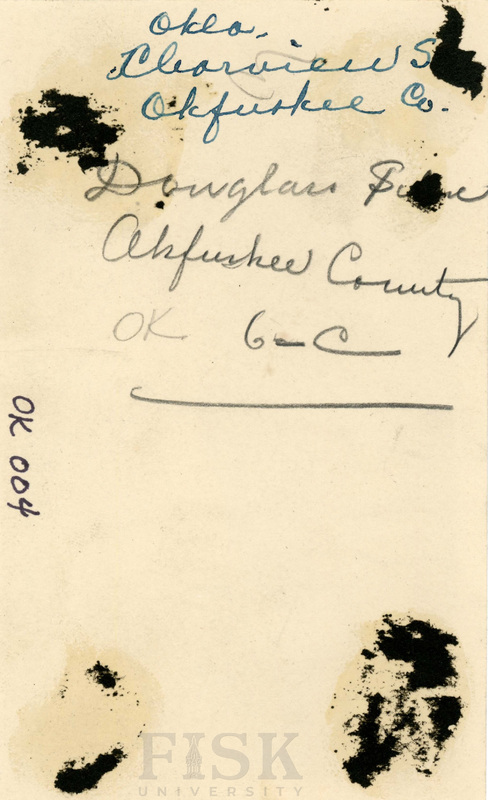 Okla.
Clearview S
Okfuskee Co.
Douglass
Okfuskee County
OK 6-C
OK 004
FISK
UNIVERSITY